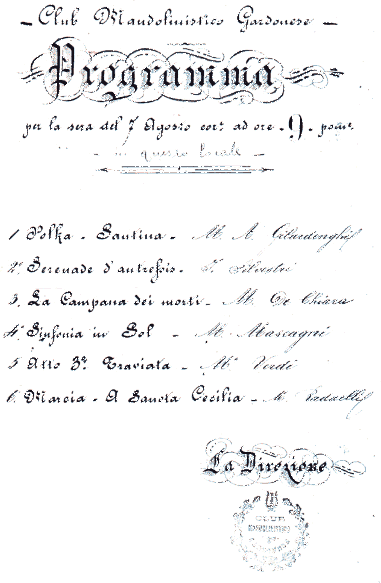 Club Mandolinistico Gardonese
Programma
per la sera del 7 Agosto corr. ad ore 9 pom.
in questo locale
1 Polka - Santina - M. A. Gilardenghi
2. Serenade d'autrefois - F. Silvestri
3. La Campana dei morti - M. De Chiara
4. Sinfonia in Sol - M. Mascagni
5 Atto 3º. Traviata - Mº Verdi
6. Marcia - A Sancta Cecilia - M.
La Direzione
CLUB